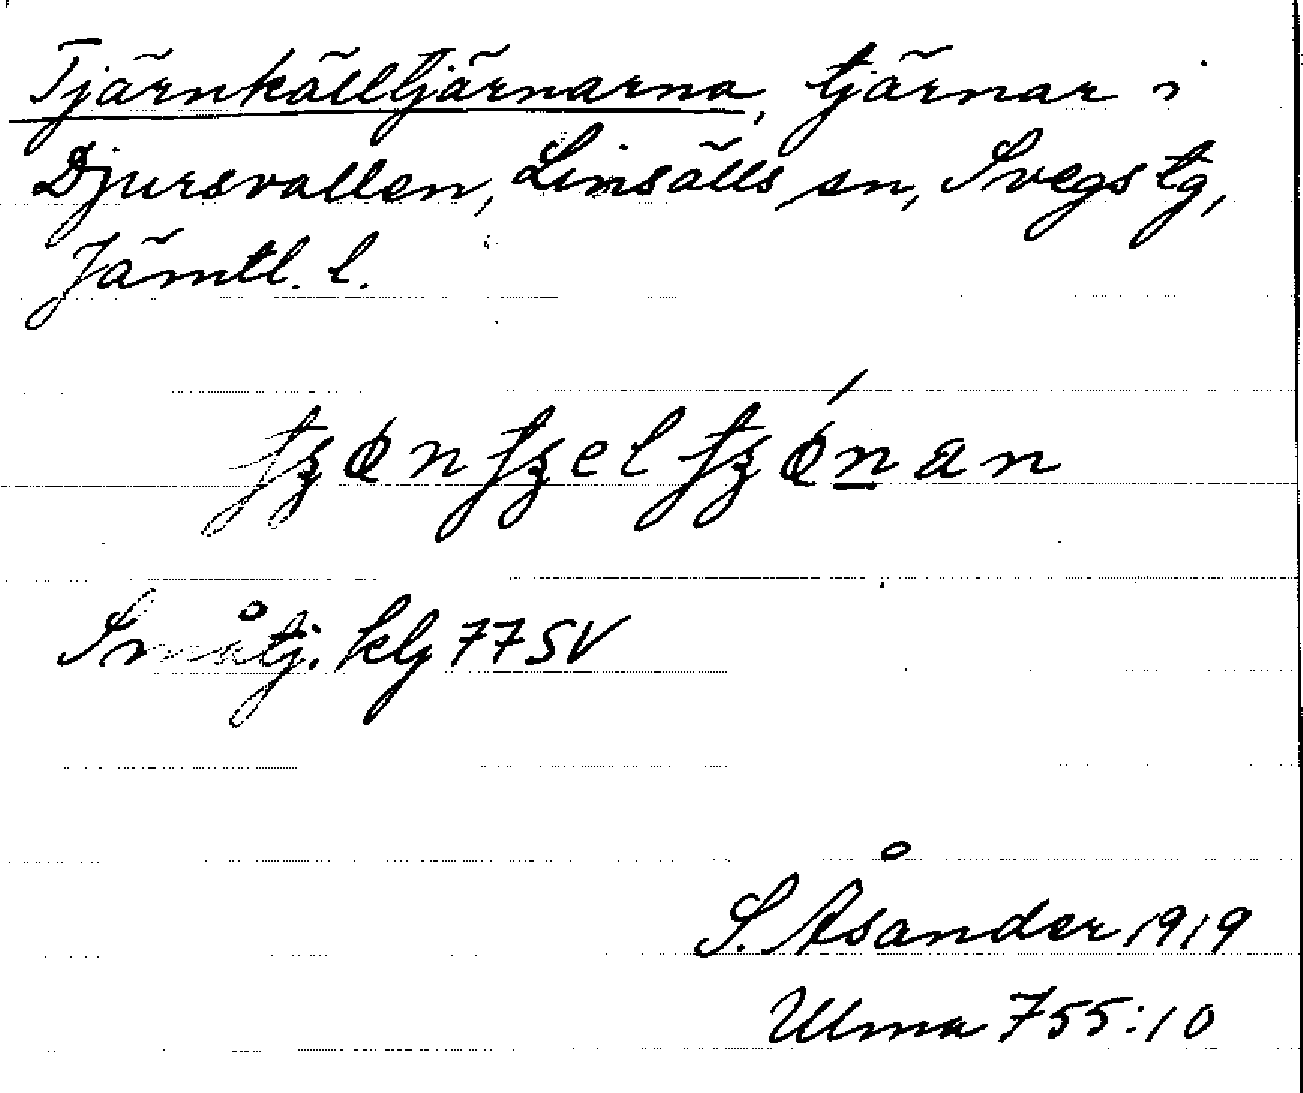 Tjärnkälltjärnarna, tjärnar i
Djursvallen, Linsälls sn, Svegs tg,
Jämtl. l.
Småtj. klg 77 SV
S. Åsander 1919
Ulma 755:10